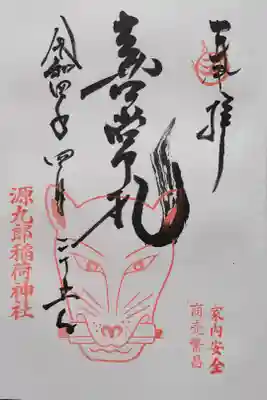 奉拝
家内安全
商売繁昌
喜常礼
令和四年四月二十日
源九郎稲荷神社